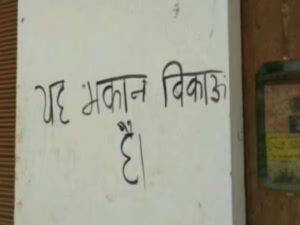 यह मकान बिकाऊ
है।